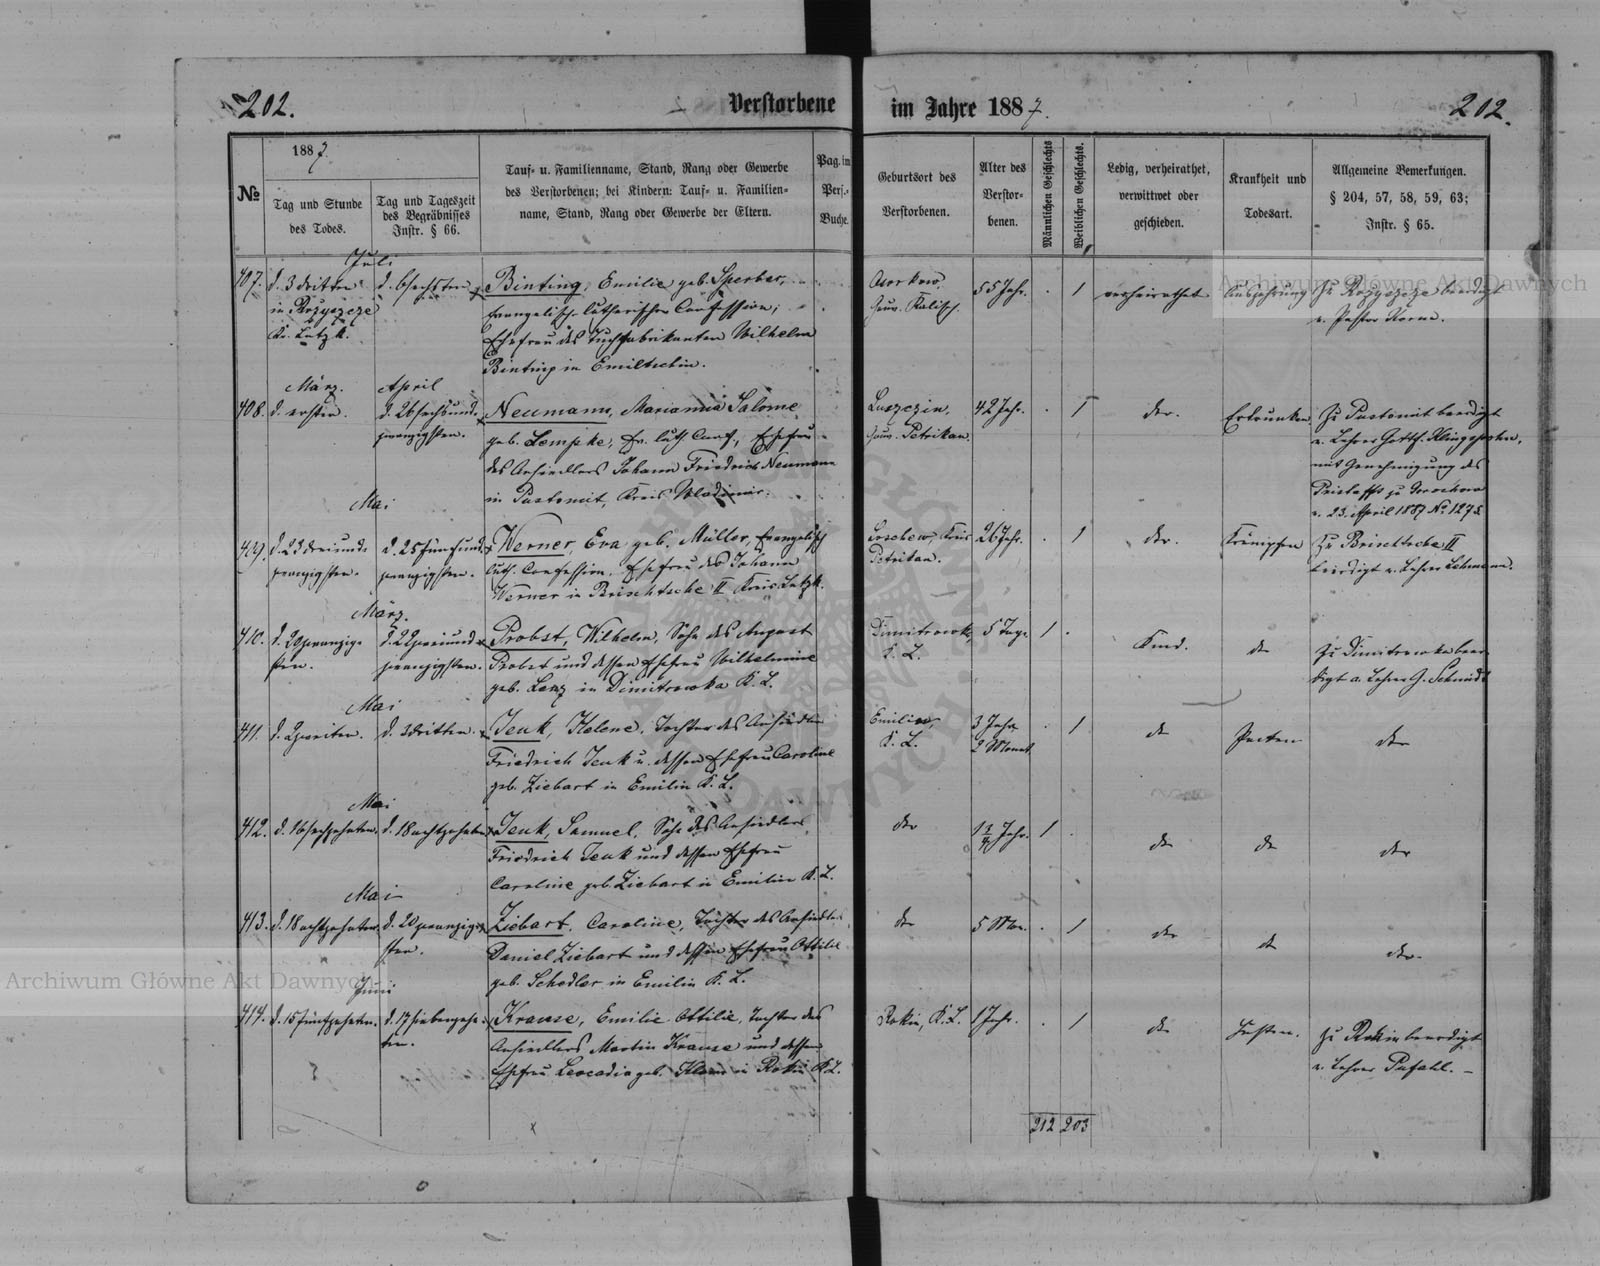 202.
Verstorbene im Jahre 1887.
202.
№
1887.
Tag und Stunde
des Todes.
Tag und Tageszeit
des Begräbnisses
Instr. § 66.
Tauf- u. Familienname, Stand, Rang oder Gewerbe
des Verstorbenen; bei Kindern: Tauf- u. Familien-
name, Stand, Rang oder Gewerbe der Eltern.
Pag. im
Pers.-
Buche.
Geburtsort des
Verstorbenen.
Alter des
Verstor-
benen.
Männlichen Geschlechts
Weiblichen Geschlechts.
Ledig, verheirathet,
verwittwet oder
geschieden.
Krankheit und
Todesart.
Allgemeine Bemerkungen.
§ 204, 57, 58, 59, 63;
Instr. § 65.
Juli
407.
d. 3 dritten
in Rozyszcze
Kr. Lutzk.
d. 6 sechsten
Binting, Emilie geb. Sperber,
Evangelisch-lutherischer Confession;
Ehefrau des Tuchfabrikanten Wilhelm
Binting in Emiltschin.
Gouv. Kalisch.
55 Jhr.
1
verheirathet
Auszehrung
Zu Rozyszcze beerdigt
v. Pastor Kerm.
März.
April
408.
d. ersten.
d. 26 sechsund-
zwanzigsten.
Neumann, Marianna Salome
geb. Lempke, Ev. luth. Conf., Ehefrau
des Ansiedlers Johann Friedrich Neumann
in Pustomit, Kreis Wladimir.
Gouv. Petrikau.
42 Jhr.
1
do.
Ertrunken
Zu Pustomit beerdigt
v. Lehrer Gottf. Klingsporn,
mit Genehmigung des
Pristaffs zu
v. 23. April 1887 № 1275
Mai
409.
d. 23 dreiund-
zwanzigsten.
d. 25 fünfund-
zwanzigsten.
Werner, Eva geb. Müller, Evangelisch
luth. Confession. Ehefrau des Johann
Werner in Brischtsche II Kreis Lutzk.
Kreis
Petrikau.
26 Jhr.
1
do.
Krämpfen
Zu Brischtsche II
beerdigt v. Lehrer Lehmann.
März.
410.
d. 20 zwanzig-
sten.
d. 22 zweiund-
zwanzigsten.
Probst, Wilhelm, Sohn des August
Probst und dessen Ehefrau Wilhelmine
geb. Lenz in Dimitrowka K. L.
Dimitrowka,
K. L.
5 Tage
1
Kind.
do
Zu Dimitrowka beer-
digt v. Lehrer G. Schmidt
Mai
411.
d. 2 zweiten.
d. 3 dritten.
Jeuk, Helene, Tochter des Ansiedlers
Friedrich Jeuk u. dessen Ehefrau Caroline
geb. Ziebart in Emilin K. L.
Emilin,
K. L.
3 Jahr
2 Monat
1
do
Pocken
do
Mai
412.
d. 16 sechzehnten.
d. 18 achtzehnten
Jeuk, Samuel, Sohn des Ansiedlers
Friedrich Jeuk und dessen Ehefrau
Caroline geb. Ziebart in Emilin K. L.
do
Jahr.
1
do
do
do
Mai
413.
d. 18 achtzehnten
d. 20 zwanzig-
sten.
Ziebart, Caroline, Tochter des Ansiedlers
Daniel Ziebart und dessen Ehefrau Ottilie
geb. Schedler in Emilin K. L.
do
5 Mon.
1
do
do
do.
Juni
414.
d. 15 fünfzehnten.
d. 17 siebenzehn-
ten.
Krause, Emilie Ottilie, Tochter des
Ansiedlers Martin Krause und dessen
Ehefrau Leocadia geb. Klam in Rokin K. L.
Rokin, K. L.
1 Jahr.
1
do
Husten.
Zu Rokin beerdigt
v. Lehrer Pufahl. –
212 203
Archiwum Główne Akt Dawnych
Archiwum Główne Akt Dawnych